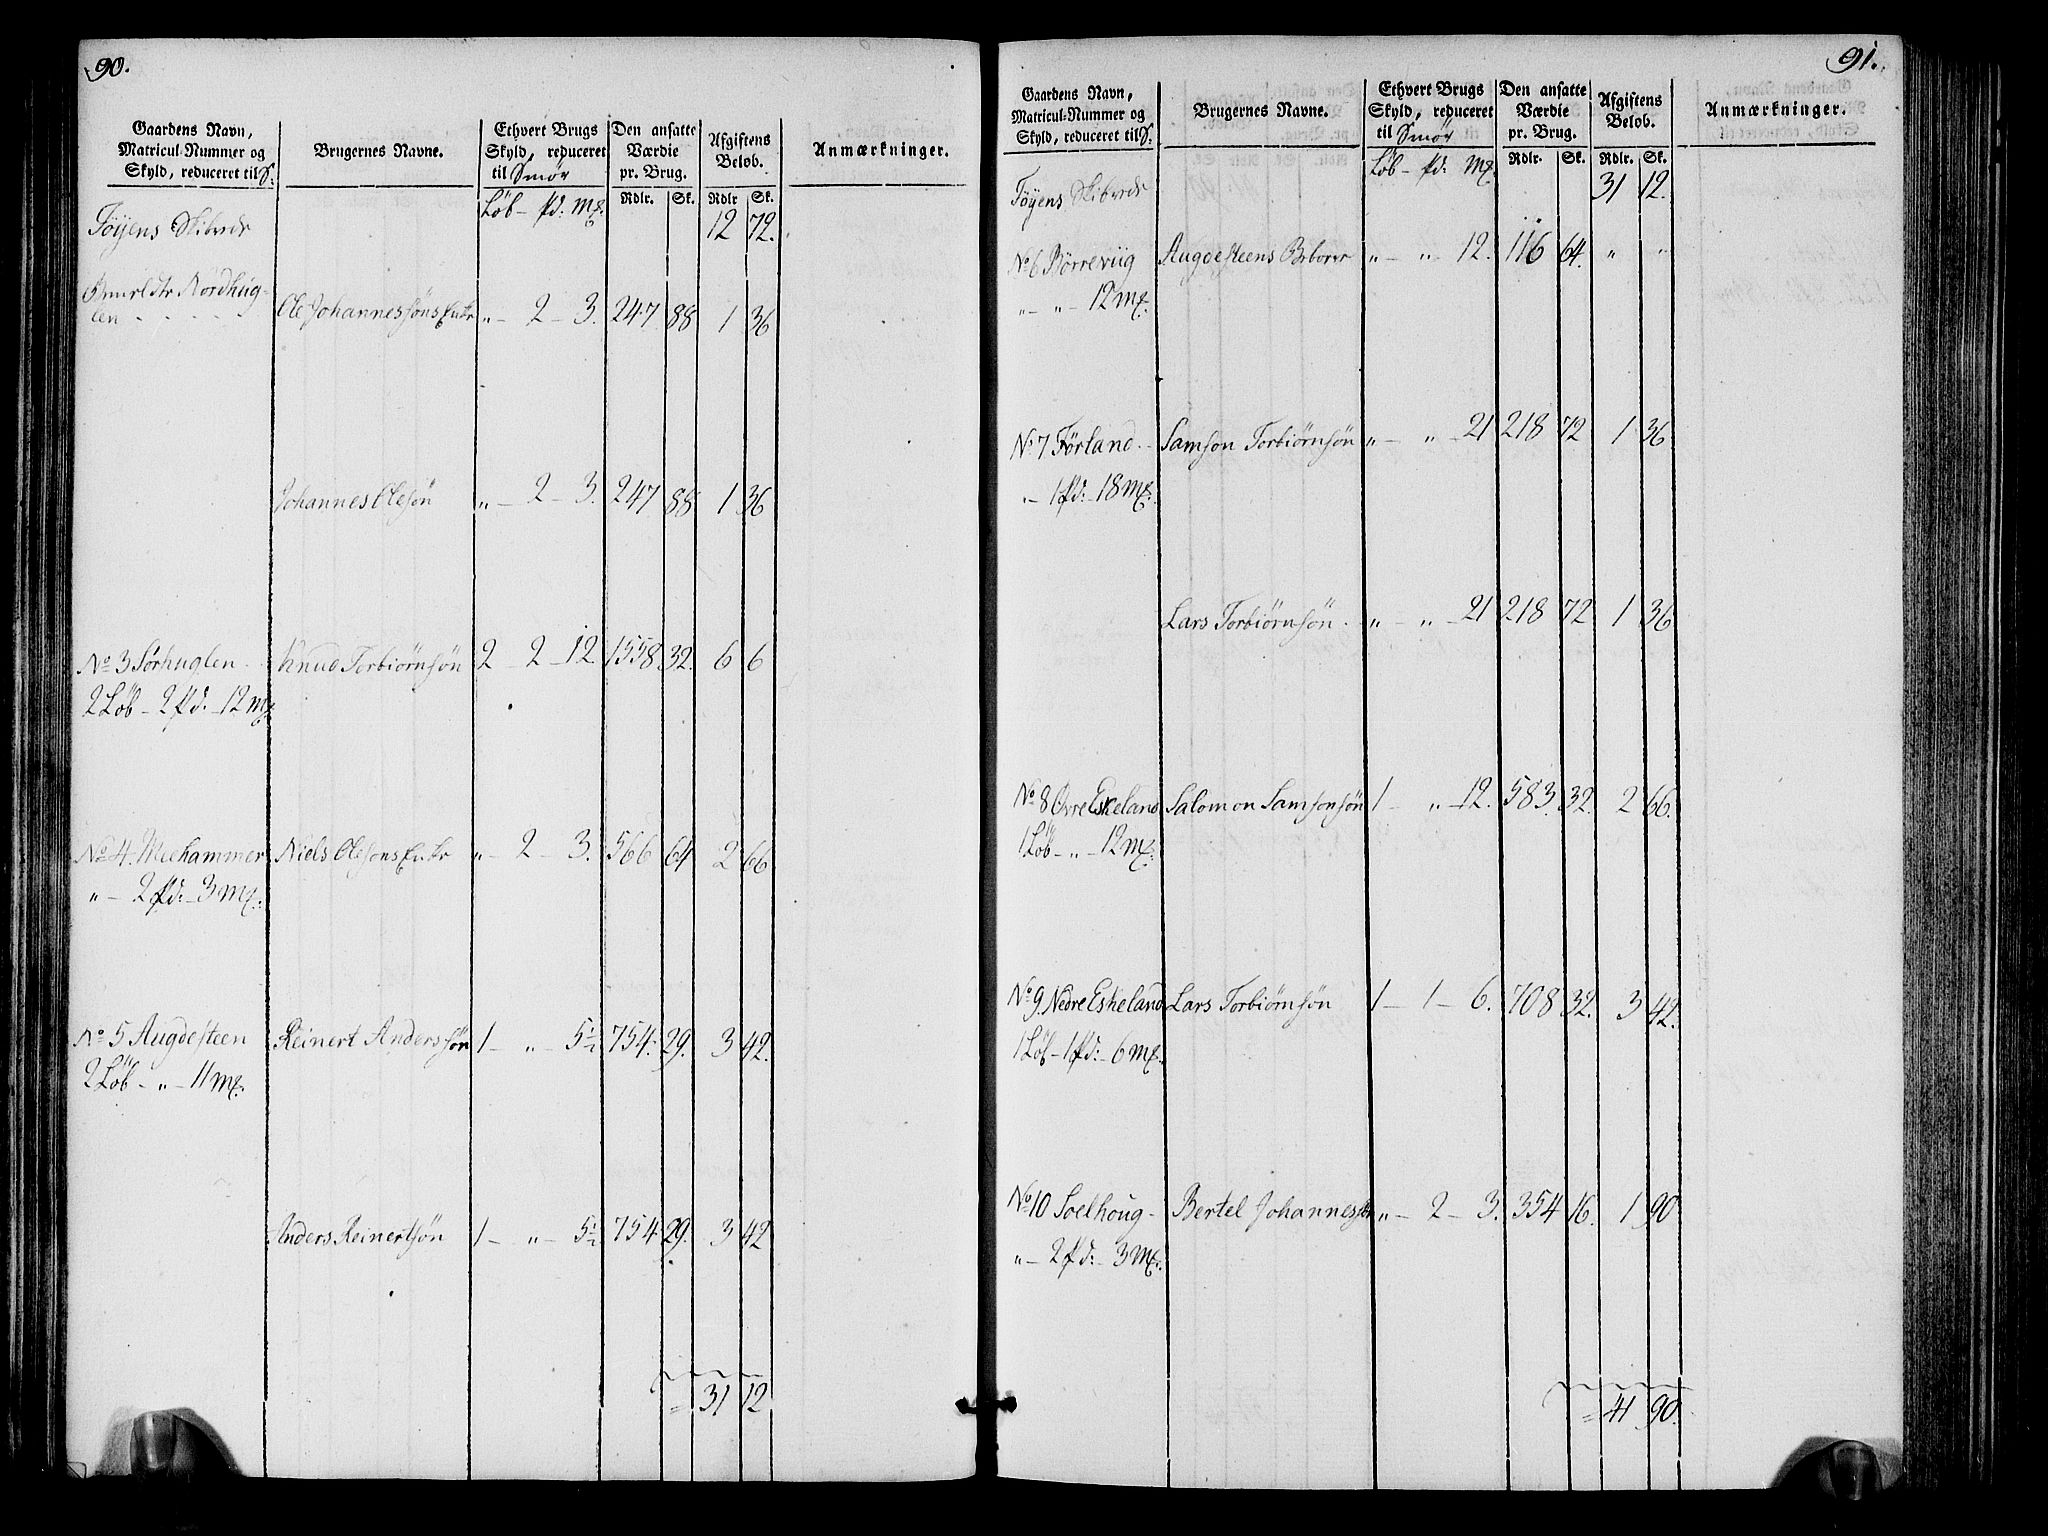 90.
Gaardens Navn, Matricul-Nummer og Skyld, reduceret til S: | Brugernes Navne. | Ethvert Brugs Skyld, reduceret til Smør | Den ansatte Værdie pr. Brug. | Afgiftens Beløb. | Anmærkninger.
Løb - pd: mk. | Rdlr. | Sk. | Rdlr | Sk.
Føyens Skibrede | 12 | 72.
Nordhug-
len - - - - Ole Johannessøns Enke „ - 2 - 3. 247 88 1 36
Johannes Olesøn „ - 2 - 3. 247 88 1 36
No 3 Sørhuglen - Knud Torbiørnsøn 2 - 2 - 12 1558 32. 6 6
2 Løb - 2 pd: - 12 mk
No 4. Meehammer Niels Olesøns Enke „ - 2 - 3. 566 64 2 66
„ - 2 pd: - 3 mk.
No 5 Augdesteen Reinert Anderssøn 1 - „ - 5½ 754. 29. 3 42.
2 Løb - „ - 11 mk.
Anders Reinertsøn 1 - „ - 5½ 754 29. 3 42
= 31 12
91.
Gaardens Navn, Matricul-Nummer og Skyld, reduceret til S: | Brugernes Navne. | Ethvert Brugs Skyld, reduceret til Smør | Den ansatte Værdie pr. Brug. | Afgiftens Beløb. | Anmærkninger.
Løb - pd: mk | Rdlr. | Sk. | Rdlr. | Sk.
Føyens Skibrede | 31 | 12.
No 6 Børreviig Augdesteens Beboere „ - „ - 12. 116 64. „ „
„ - „ - 12 mk.
No 7 Førland - Samson Torbiørnsøn „ - „ - 21 218 72 1 36
„ - 1 pd: - 18 mk.
Lars Torbiørnsøn - „ - „ - 21 218 72 1 36
No 8 Øvre Eskeland Salomon Samsonsøn 1 - „ - 12. 583 32. 2 66.
1 Løb - „ - 12 mk.
No 9. Nedre Eskeland Lars Torbiørnsøn 1 - 1 - 6. 708 32. 3 42.
1 Løb - 1 pd: - 6 mk.
No 10 Soelhoug - Bertel Johannessøn „ - 2 - 3. 354 16. 1 90
„ - 2 pd: - 3 mk.
= 41 90.